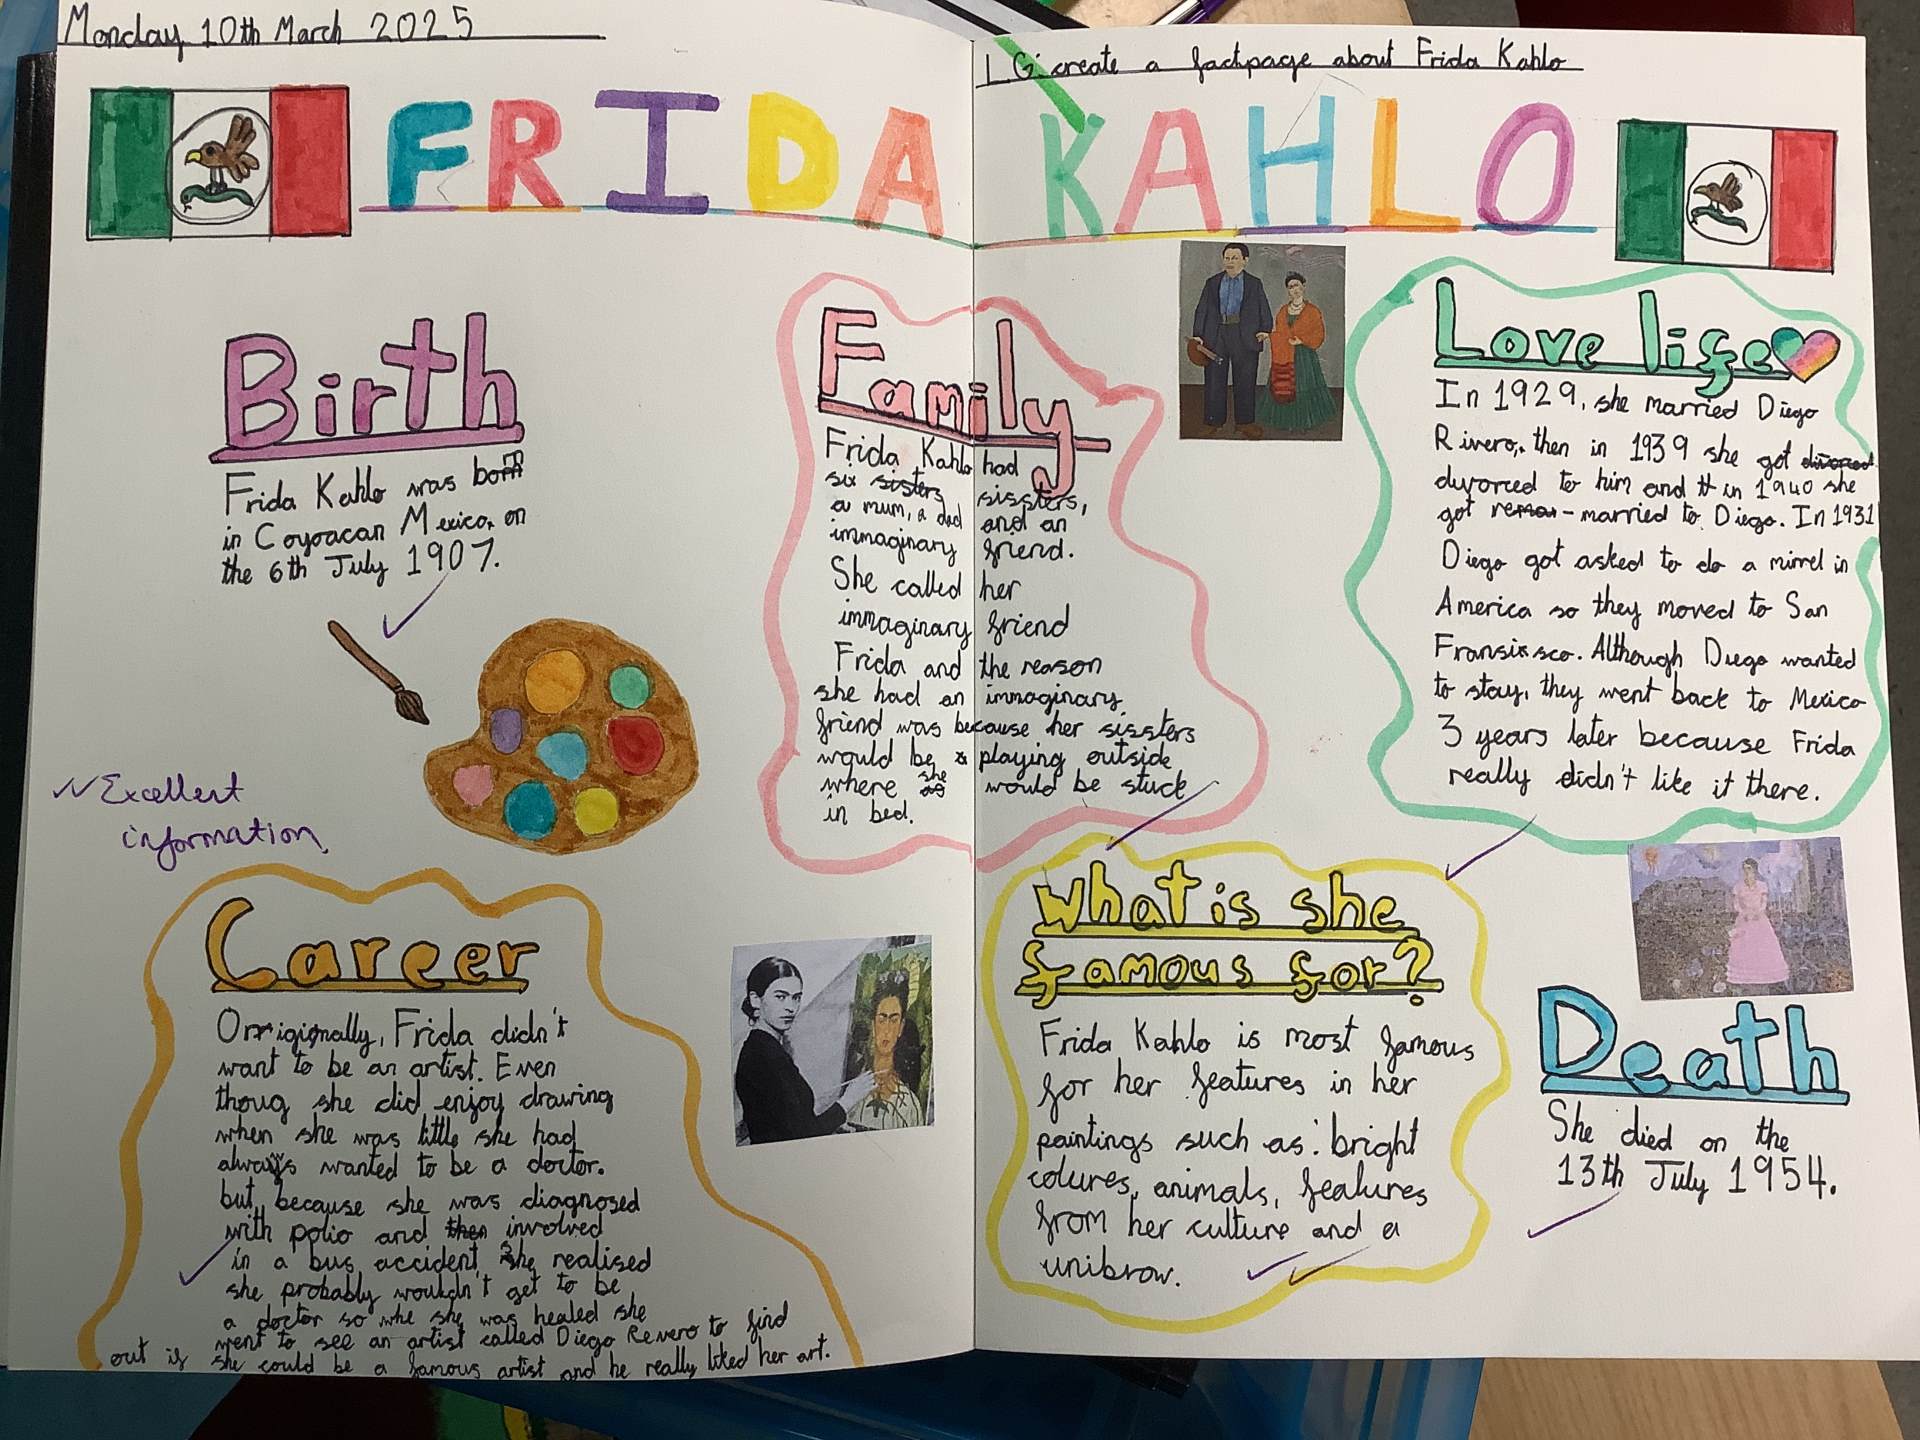 Monday 10th March 2025
L.G: create a factpage about Frida Kahlo
FRIDA KAHLO
Birth
Frida Kahlo was born
in Coyoacan Mexico, on
the 6th July 1907.
Family
Frida Kahlo had
six sissters,
a mum, a dad and an
immaginary friend.
She called her
immaginary friend
Frida and the reason
she had an immaginary
friend was because her sissters
would be playing outside
where she would be stuck
in bed.
Love life
In 1929, she married Diego
Rivero, then in 1939 she got
divorced to him and in 1940 she
got re-married to Diego. In 1931
Diego got asked to do a mirrel in
America so they moved to San
Fransisco. Although Diego wanted
to stay, they went back to Mexico
3 years later because Frida
really didn't like it there.
Excellent
information
Career
Orrigionally, Frida didn't
want to be an artist. Even
thoug she did enjoy drawing
when she was little she had
always wanted to be a doctor.
but because she was diagnosed
with polio and involved
in a bus accident she realised
she probably wouldn't get to be
a doctor so whe she was healed she
went to see an artist called Diego Revero to find
out if she could be a famous artist and he really liked her art.
What is she
famous for?
Frida Kahlo is most famous
for her features in her
paintings such as: bright
colures, animals, features
from her culture and a
unibrow.
Death
She died on the
13th July 1954.